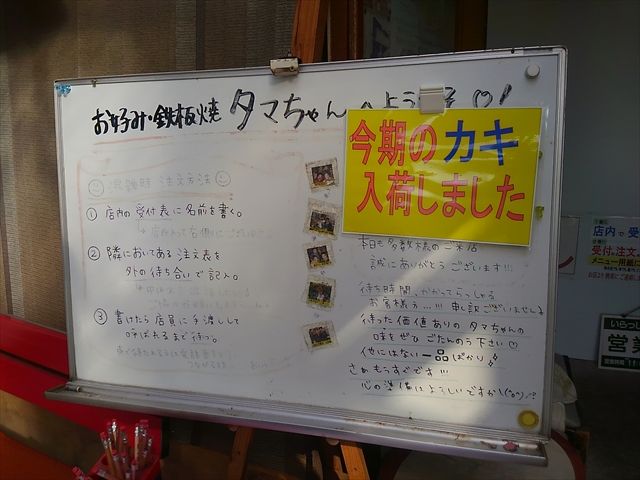 お好み・鉄板焼 タマちゃん へようこそ♡!
今期のカキ
入荷しました
混雑時 注文方法
① 店内の受付表に名前を書く。
② 隣においてある注文表を
外の待ち合いで記入。
③ 書けたら店員に手渡しして
呼ばれるまで待つ。
本日も多数様のご来店
誠にありがとうございます!!!
待ち時間、かかってらっしゃる
お客様方...!!! 申し訳ございませんね
待った価値ありのタマちゃんの
味をぜひごたんのう下さい♡
他にはない一品ばかり
さぁもうすぐです!!!
心の準備はよろしいですか
店内で受
受付&注文
メニュー用紙に
いらっ
営業